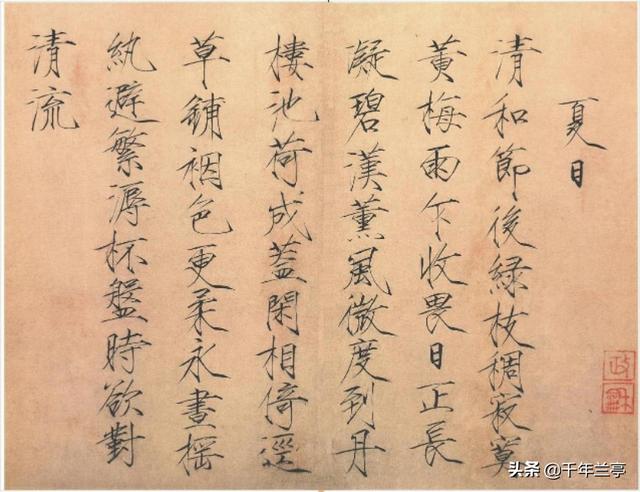 夏日
清和節後緑枝稠寂寞
黃梅雨乍收畏日正長
凝碧漢薰風微度到丹
樓池荷成蓋閑相倚逕
草鋪裀色更柔永晝搖
紈避繁溽杯盤時欲對
清流
政龢
头条 @千年兰亭